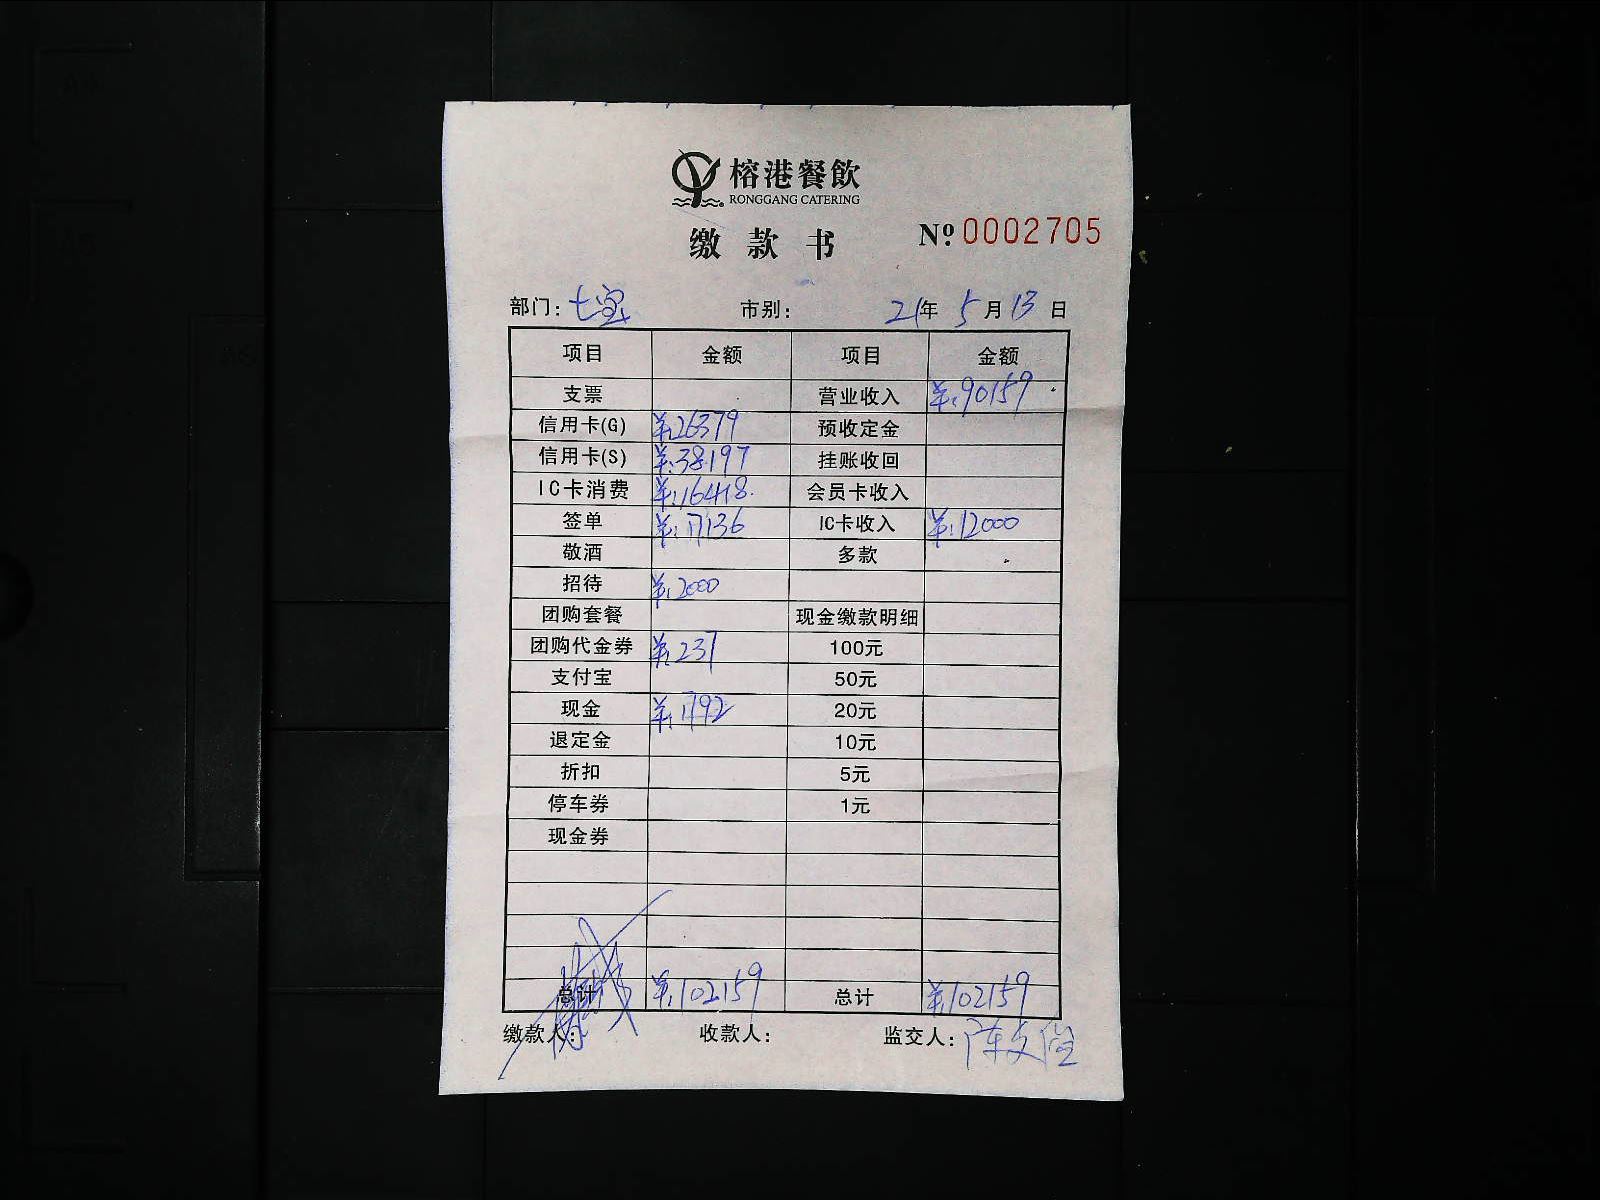 榕港餐飲
RONGGANG CATERING
缴款书 Nº 0002705
部门: 七宝 市别: 21年 5月 13日
项目 金额 项目 金额
支票 营业收入 ¥:90159
信用卡(G) ¥:26379 预收定金
信用卡(S) ¥:38197 挂账收回
IC卡消费 ¥:16418 会员卡收入
签单 ¥:17136 IC卡收入 ¥:12000
敬酒 多款
招待 ¥:2000
团购套餐 现金缴款明细
团购代金券 ¥:237 100元
支付宝 50元
现金 ¥:1792 20元
退定金 10元
折扣 5元
停车券 1元
现金券
总计 ¥:102159 总计 ¥:102159
缴款人: 收款人: 监交人: 陈